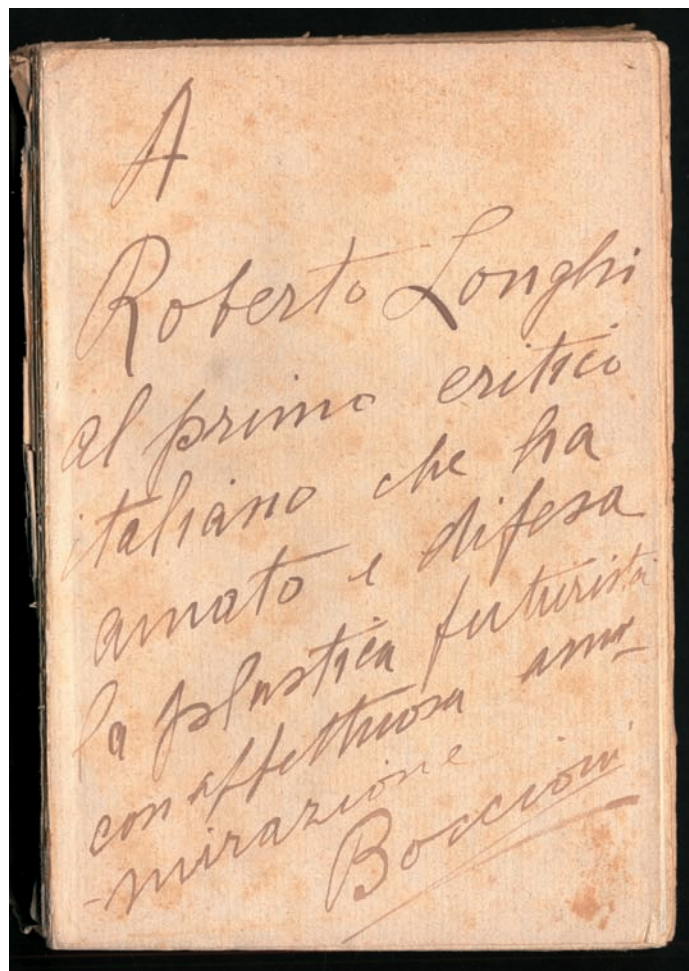 A
Roberto Longhi
al primo critico
italiano che ha
amato e difesa
la plastica futurista
con affettuosa am-
-mirazione
Boccioni